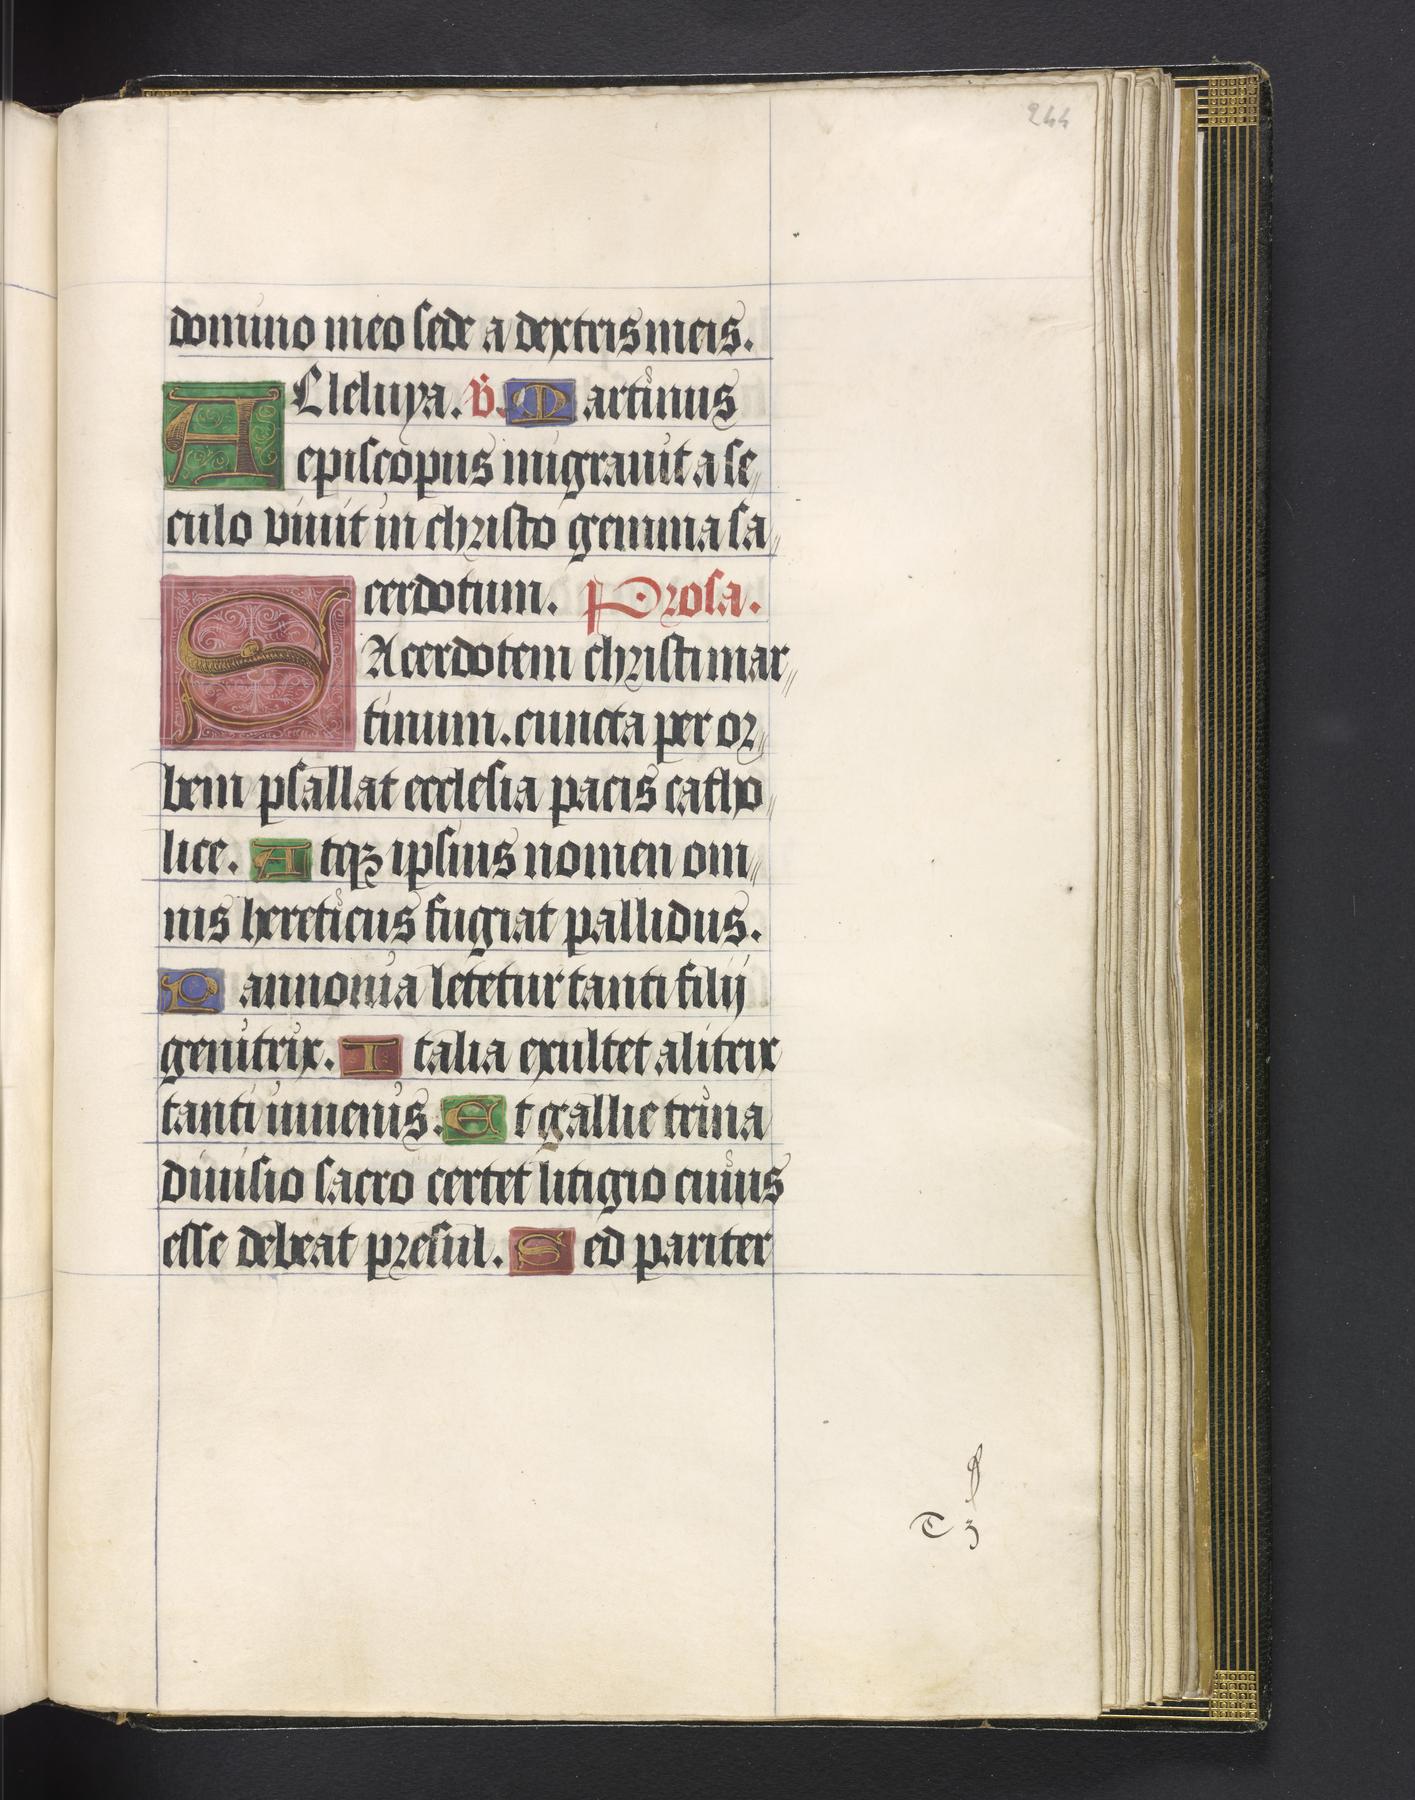 244
domino meo sede a dextris meis.
ALleluya. ℣. Martinus
episcopus migrauit a se„
culo viuit in christo gemma sa„
cerdotum. Prosa.
SAcerdotem christi mar„
tinum. cuncta per or„
bem psallat ecclesia pacis catho„
lice. Atqꝫ ipsius nomen om„
nis hereticus fugiat pallidus.
Pannonia letetur tanti filij
genitrix. Italia exultet alitrix
tanti iuuenis. Et gallie trina
diuisio sacro certet litigio cuius
esse debeat presul. Sed pariter